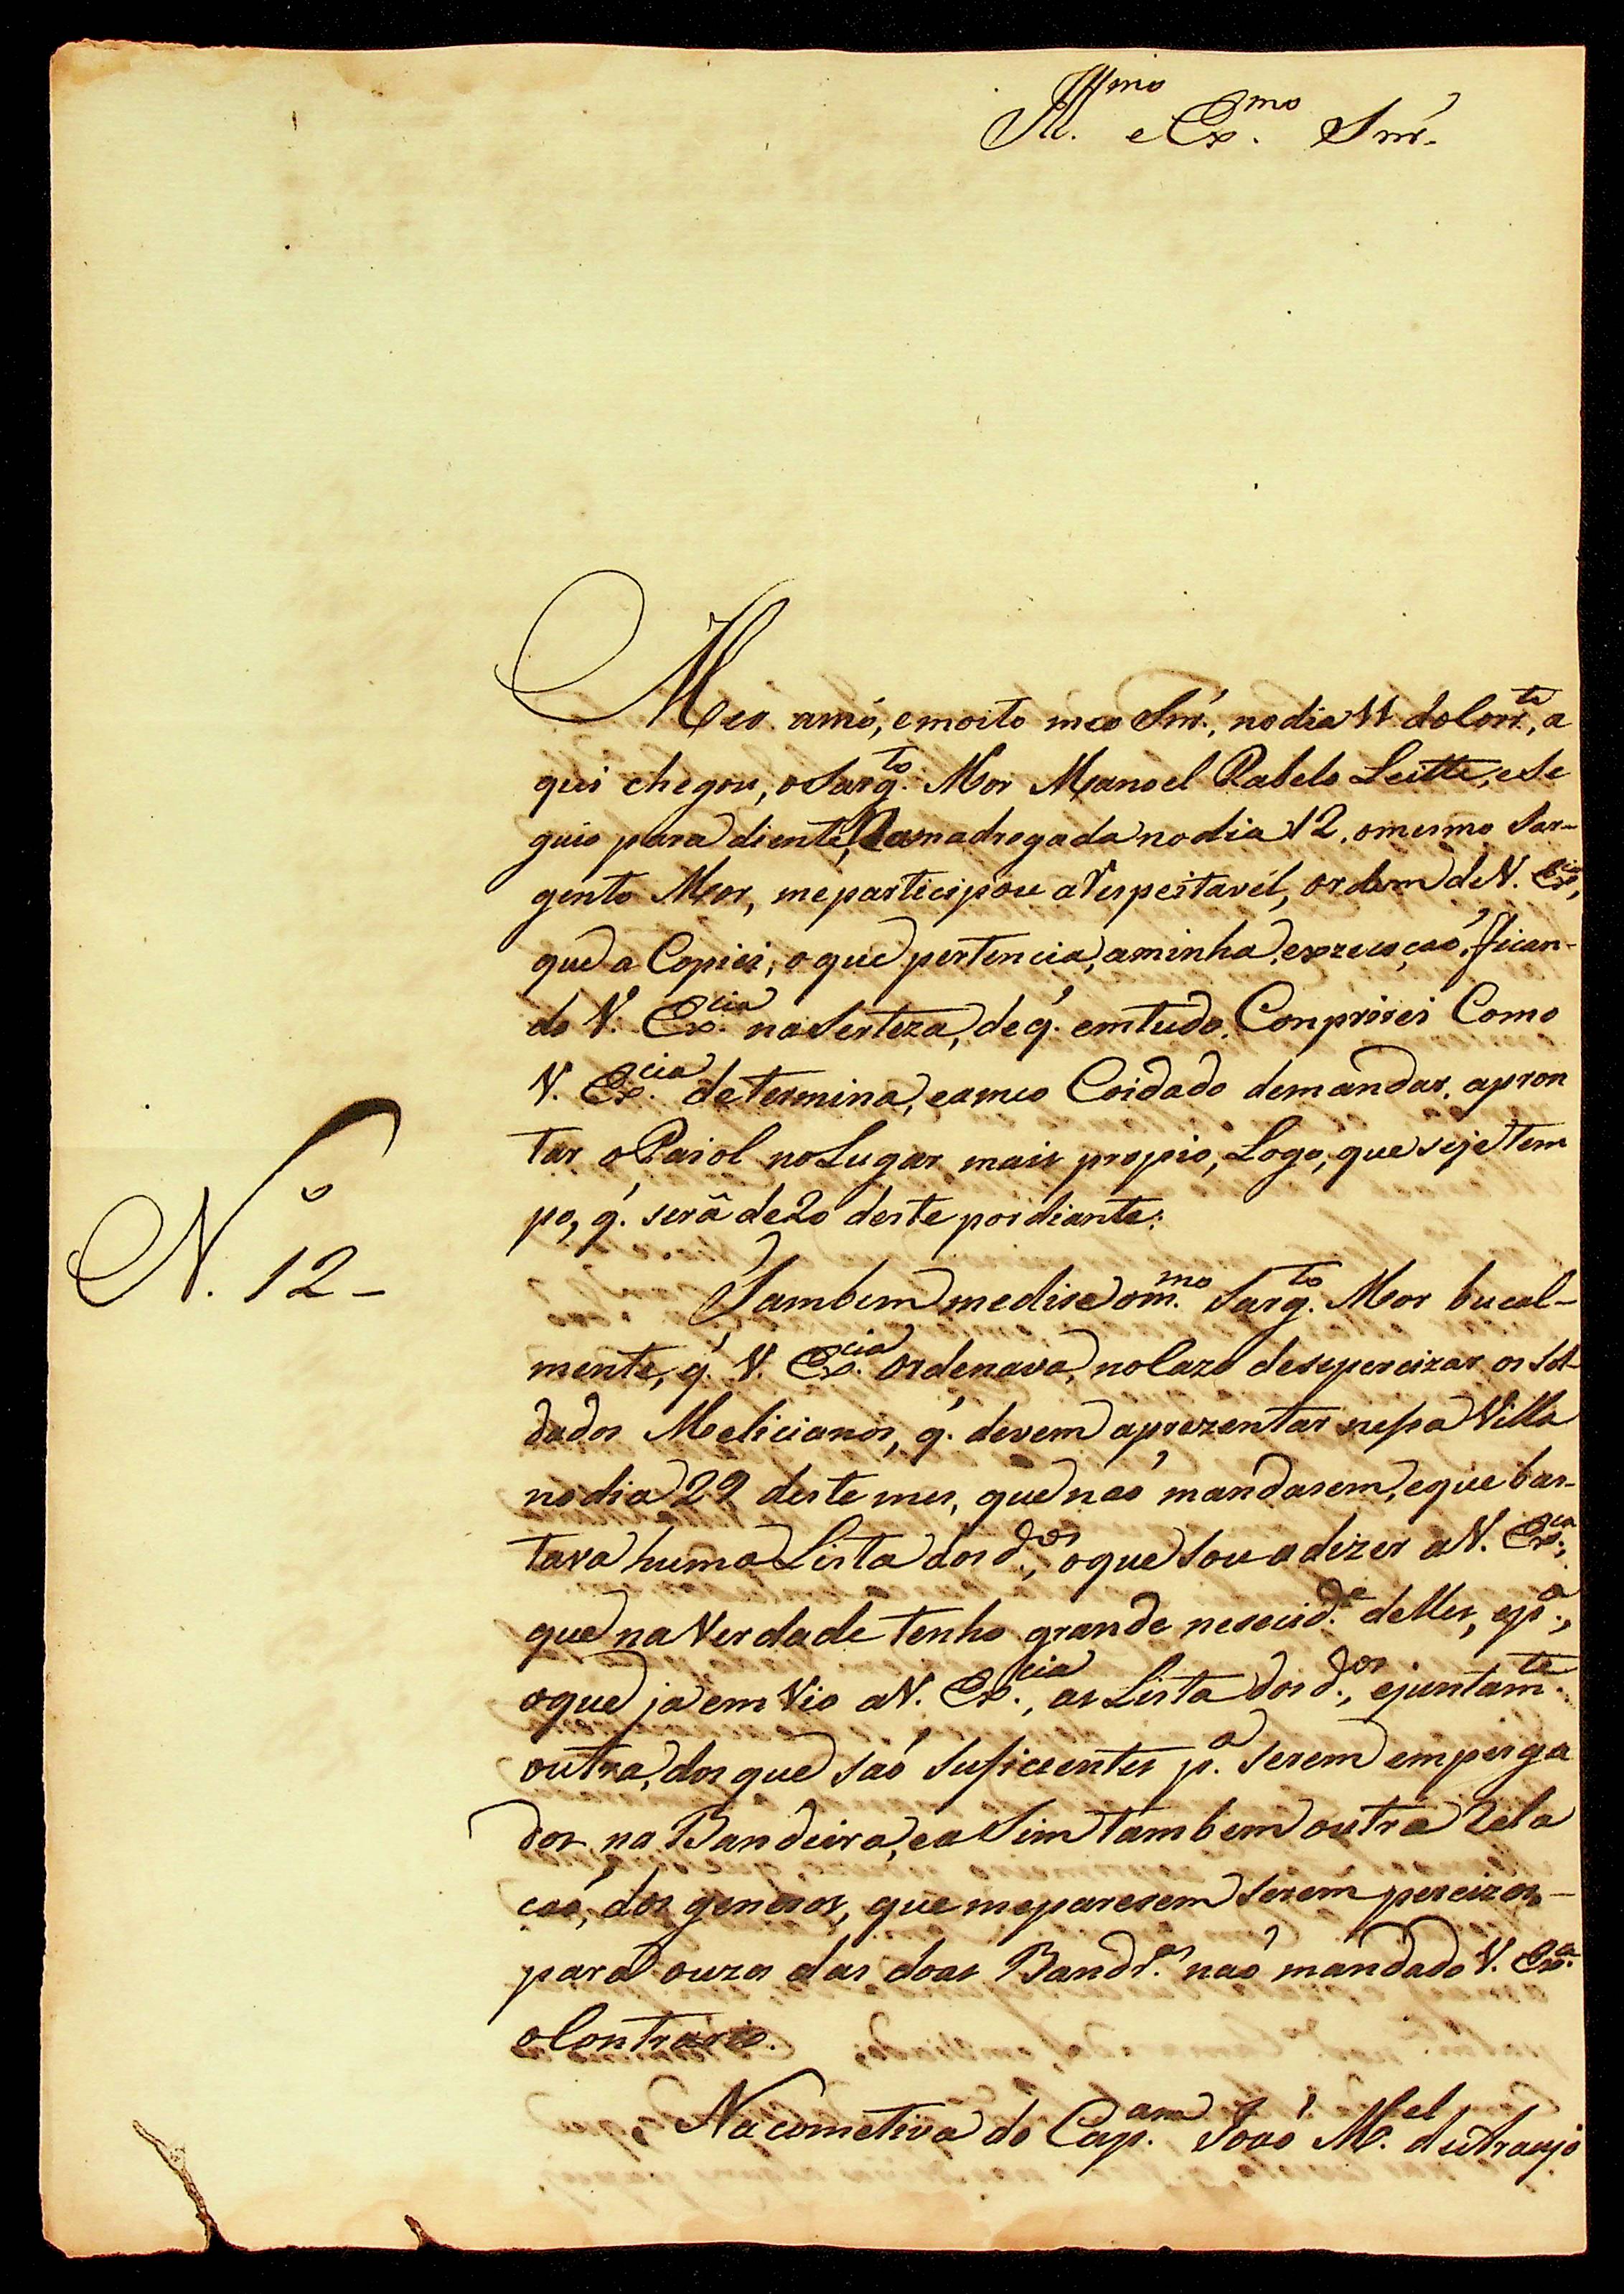 Ill.mo e Ex.mo Snr.
Meo amo, e moito meo Snr., no dia 11 do Corr.te, a
qui chegou, o Sarg.to Mor Manoel Rabelo Leitte, e Se
guio para diente, Na madregada no dia 12, o mesmo Sar-
gento Mor, me participou a Respeitavel, ordem de V. Ex.cia,
que a Copiei, o que pertencia, a minha, exzecuçaó, fican-
do V. Ex.cia na Serteza, de q. em tudo, Conprirei Como
V. Ex.cia determina, e a meo Coidado de mandar, apron
tar o Paiol no Lugar mais propio, Logo, que seje tem
po, q. serâ de 20 deste por diante:
N.o 12-
Tambem me dise o m.mo Sarg.to Mor bucal-
mente, q. V. Ex.cia ordenava, no Cazo de se percizar os Sol
dados Melicianos, q. devem aprezentar nessa Villa
no dia 29 deste mes, que naó mandasem, e que bas-
tava huma Lista dos d.os, o que Sou a dizer a V. Ex.ca,
que na Verdade tenho grande nesecid.e delles, e p.a,
o que ja em Vio a V. Ex.cia, as Lista dos d.os, e juntam.te
outra, dos que saó Suficientes p.a serem empirga
dos, na Bandeira, e a Sim tambem outra Rela
caó, dos generos, que me paresem serem percizos-
para ouzo das doas Bandr.as naó mandado V. Ex.a
o Contrario.
Na cometiva do Cap.am Joaó M.el de Araujo